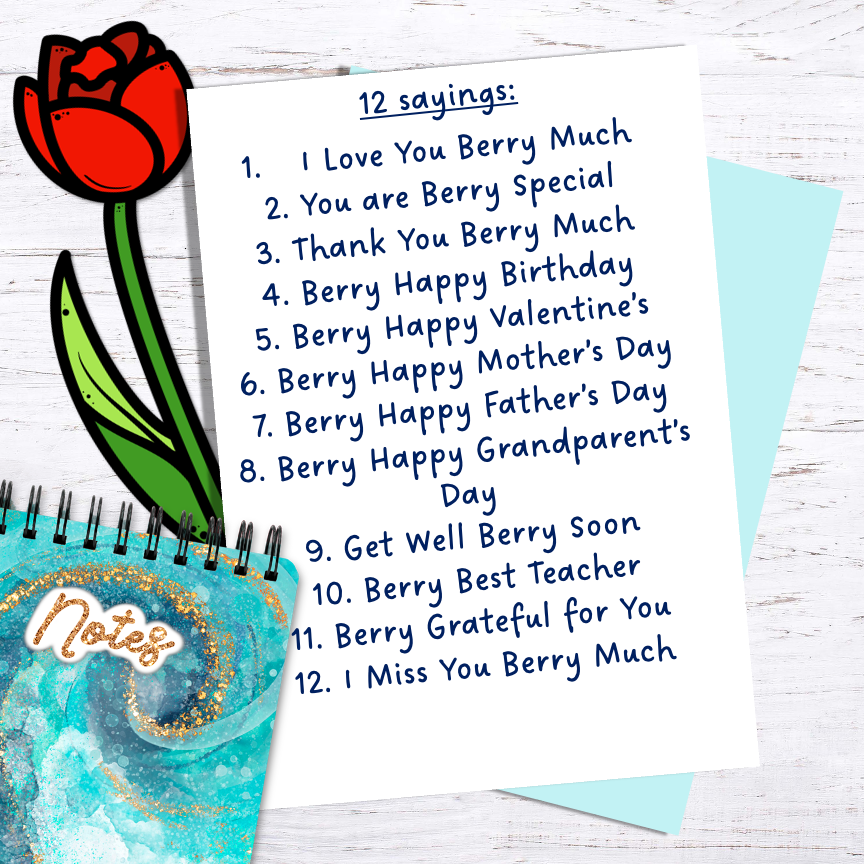 12 sayings:
1. I Love You Berry Much
2. You are Berry Special
3. Thank You Berry Much
4. Berry Happy Birthday
5. Berry Happy Valentine's
6. Berry Happy Mother's Day
7. Berry Happy Father's Day
8. Berry Happy Grandparent's
Day
9. Get Well Berry Soon
10. Berry Best Teacher
11. Berry Grateful for You
12. I Miss You Berry Much
Notes